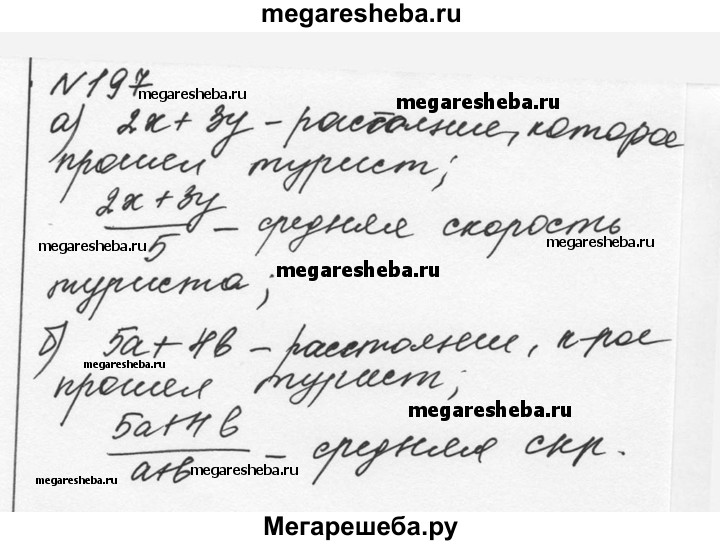 megaresheba.ru
№197
megaresheba.ru
megaresheba.ru
а) 2x + 3y – расстояние, которое
прошел турист;
2x + 3y
5
– средняя скорость
megaresheba.ru
megaresheba.ru
туриста;
megaresheba.ru
б) 5a + 4b – расстояние, к-рое
megaresheba.ru
прошел турист;
megaresheba.ru
5a + 4b
a+b
– средняя скр.
megaresheba.ru
megaresheba.ru
Мегарешеба.ру